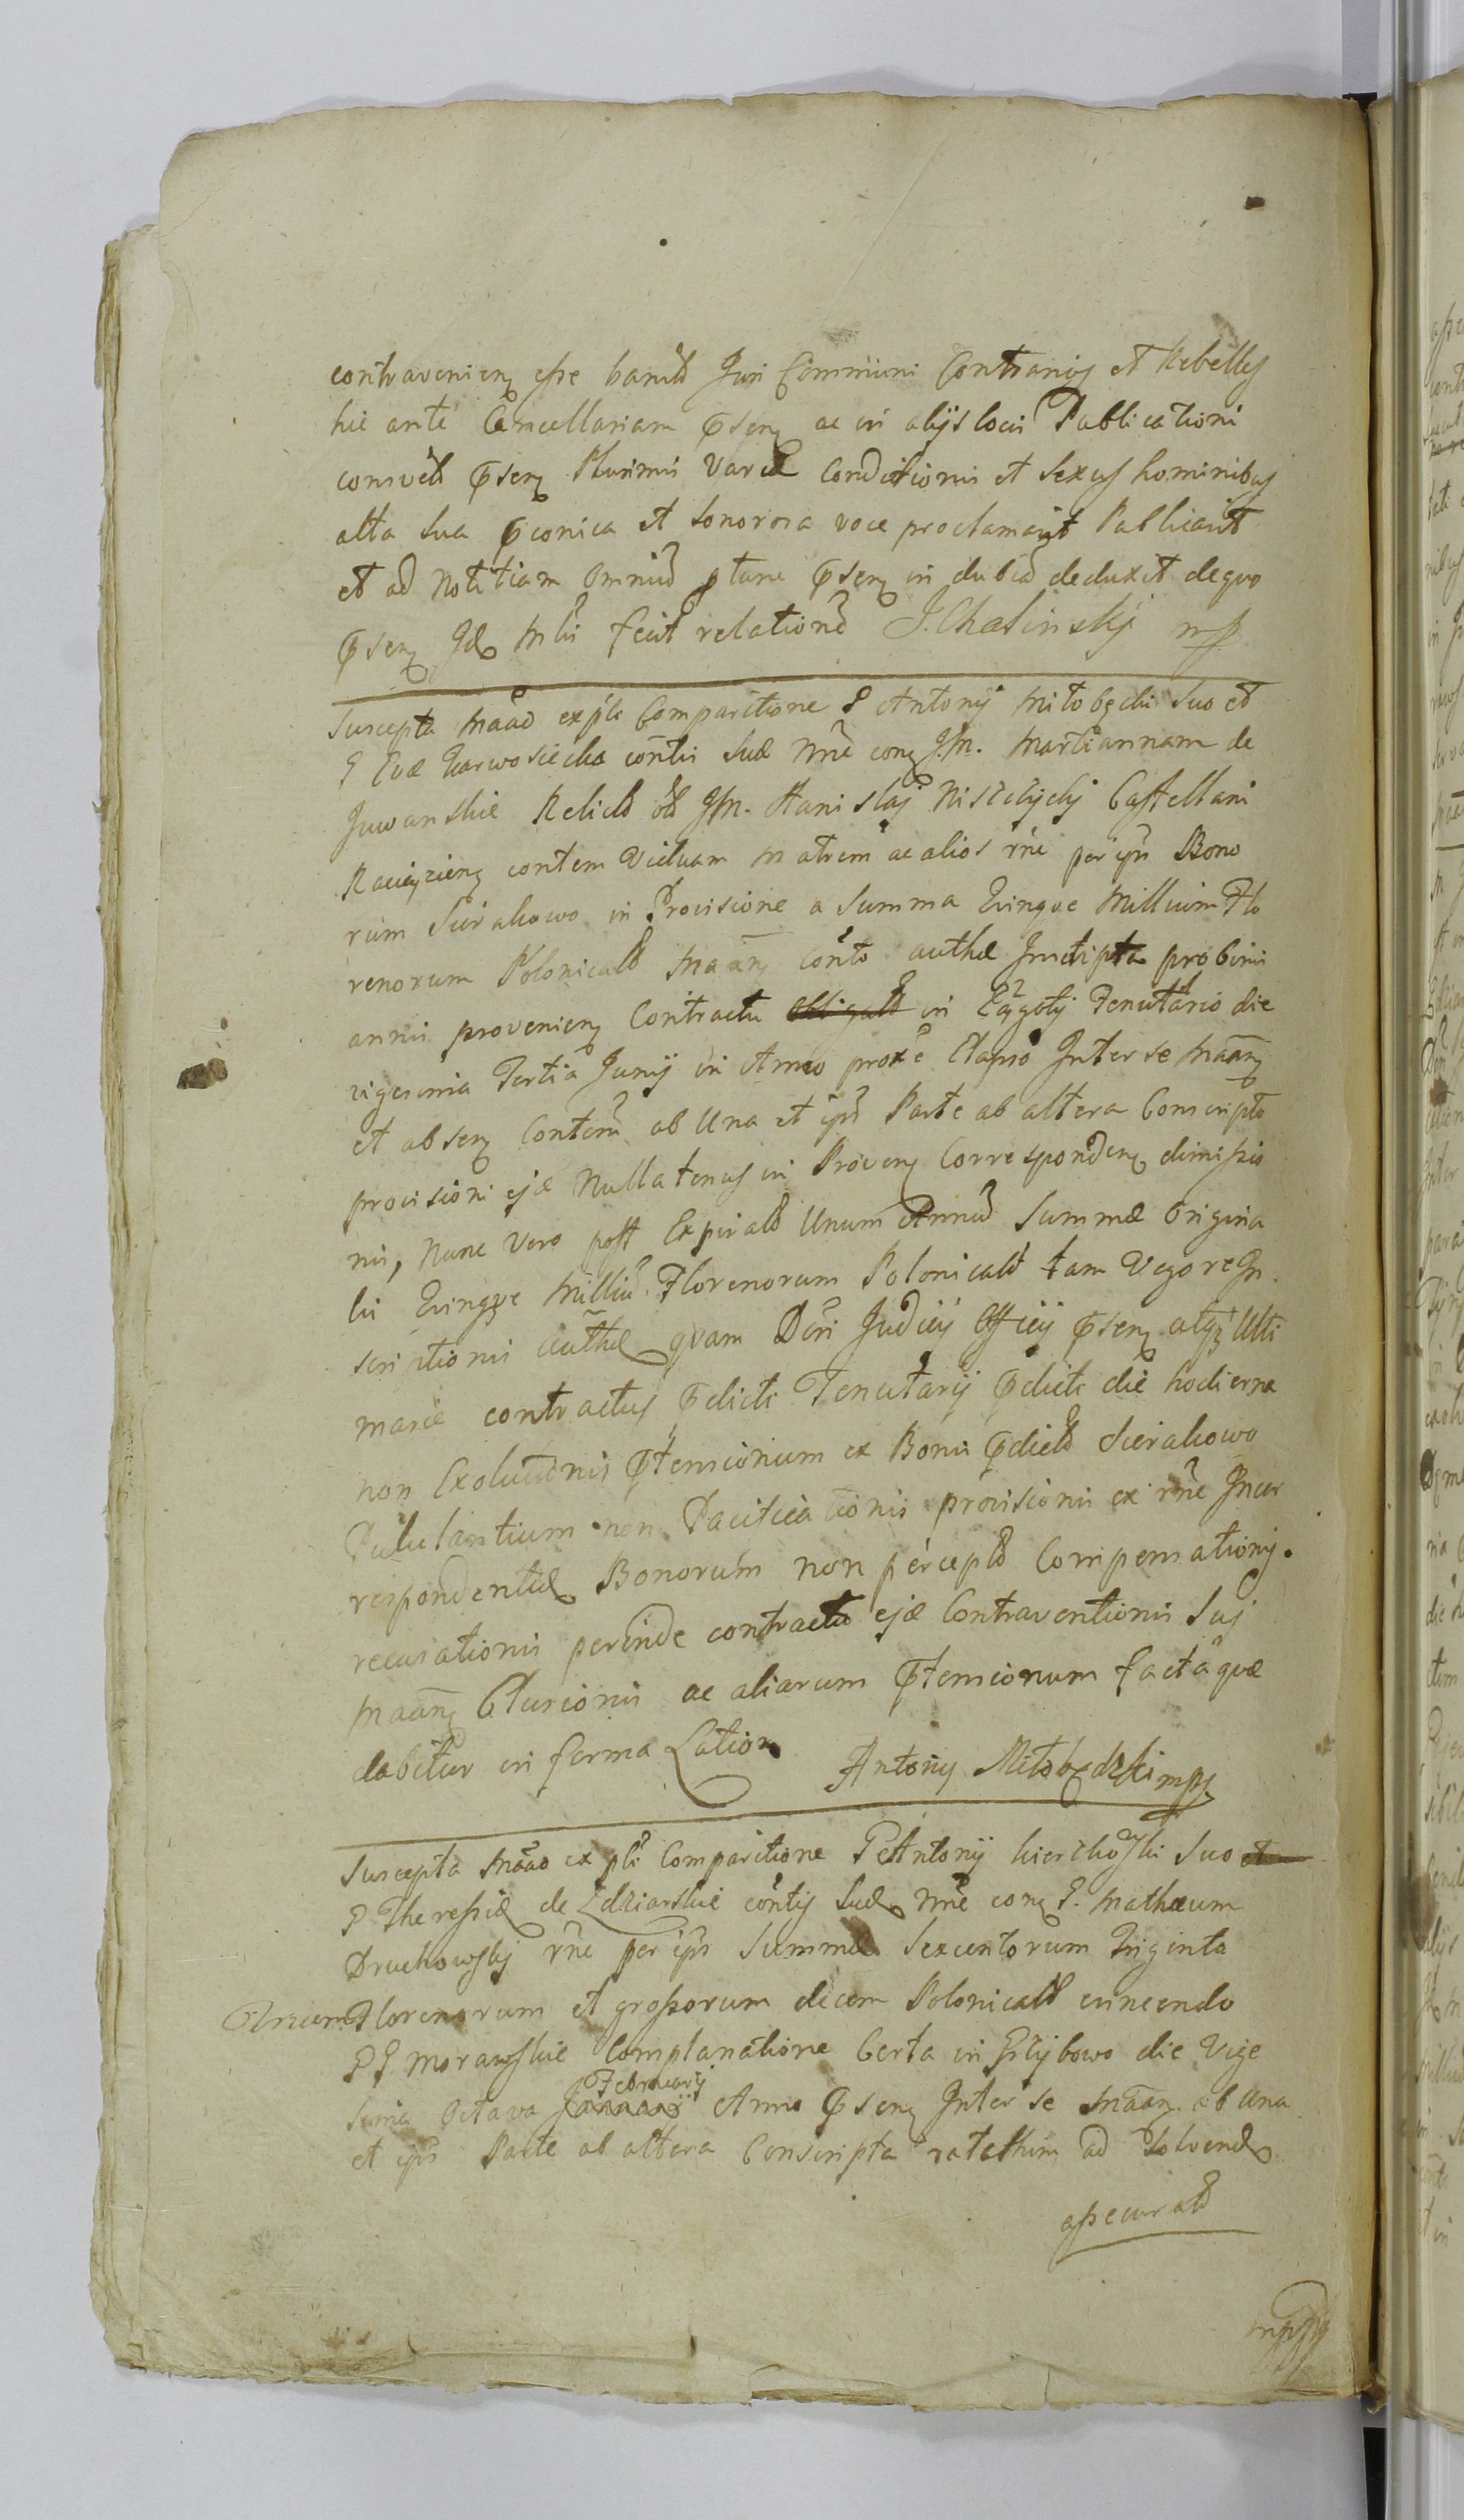 contravenien esse banitũ Juri Communi Contrarios et Rebelles
hic ante Cancellariam psen ac in alijs locis Publicationi
consvet psen Plurimis Variæ Conditionis et Sexus hominibus
alta sua pconica et Sonorosa voce proclamavit Publicavit
et ad Notitiam omniũ ptunc psen in dubiã deduxit deqvo
psen Idq mihi fecit relationẽ J. Chalinskj mp
Suscepta Mãad ex psli Comparitione P Antonij Miłobęcki Suo et
P Evæ Karwosiecka contis Suæ Nne con J.M. Martiannam de
Juwanskie Relictã ol JM. Stanislaj Nisczÿckj Castellani
Raciązien contem Viduam Matrem ac alios rne per ips Bono
rum Sierakowo in Provisione a Summa Qvinqve Millium Flo
renorum Polonicaliũ Maan contõ authæ Inscripta probini
annis provenien Contractu in Tenutario die
vigesima Tertia Junij in Anno proxe Elapso Inter se Maan
et absen Contem ab Una et ips Parte ab altera Conscripto
provisioni ejæ Nullatenus in Proven Corresponden dimissis
nis, Nunc Vero post Expiratũ Unum Annũ Summæ Origina
lis Qvinqve Milliũ Florenorum Polonicaliũ tam Vigore In
scriptionis authæ qvam Dcri Judicij Officij psen atq Ulti
mariæ contractus pdicti Tenutarij pdicti die hodierna
non Exolutionis ptensionum ex Bonis pdictũ Sierakowo
Pululantium non Pacificationis provisionis ex rne Incor
respondentiæ Bonorum non perceptũ Compensationis.
recusationis perinde contractus ejæ Contraventionis Sui
Maan Clusionis ac aliarum ptensionum facta qvæ
dabitur in forma Lation Antonij Miłobędzki mp
Suscepta Mãao ex psli Comparitione P Antonij Suo et
P Theressiæ de Zdziarskie contis Suæ Nne con P. Mathæum
Druchowskj rne per ips Summæ Sexcentorum Triginta
Trium Florenorum et grossorum decem Polonicaliũ evincendo
PP Morawskie Complanatione Certa in die Vige
sima Octava Januarij Februarij Anno psen Inter se Maan ab Una
et ips Parte ab altera Conscripta ratathim ad Solvend
assecuratũ